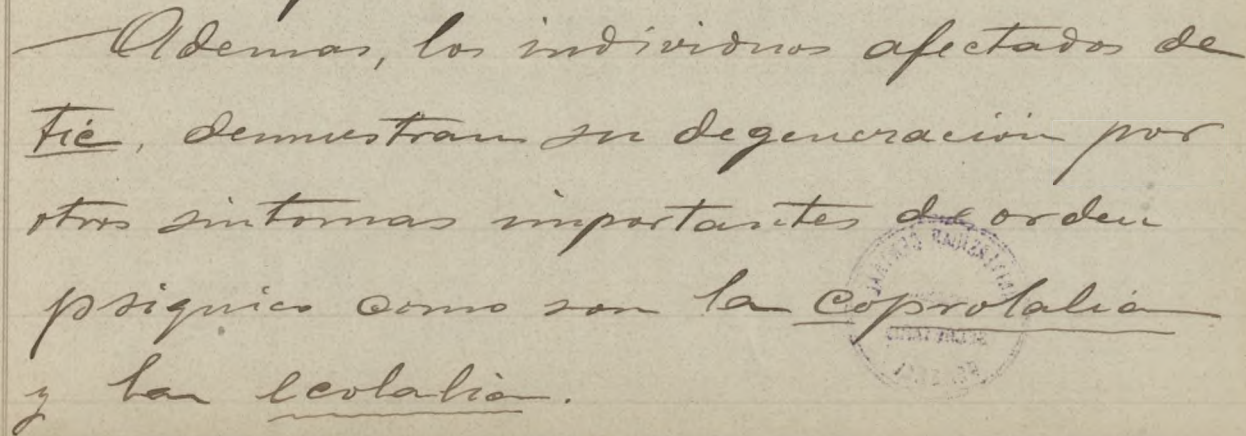 Ademas, los individuos afectados de
tic, demuestran su degeneración por
otros sintomas importantes de orden
psiquico como son la coprolalia
y la ecolalia.